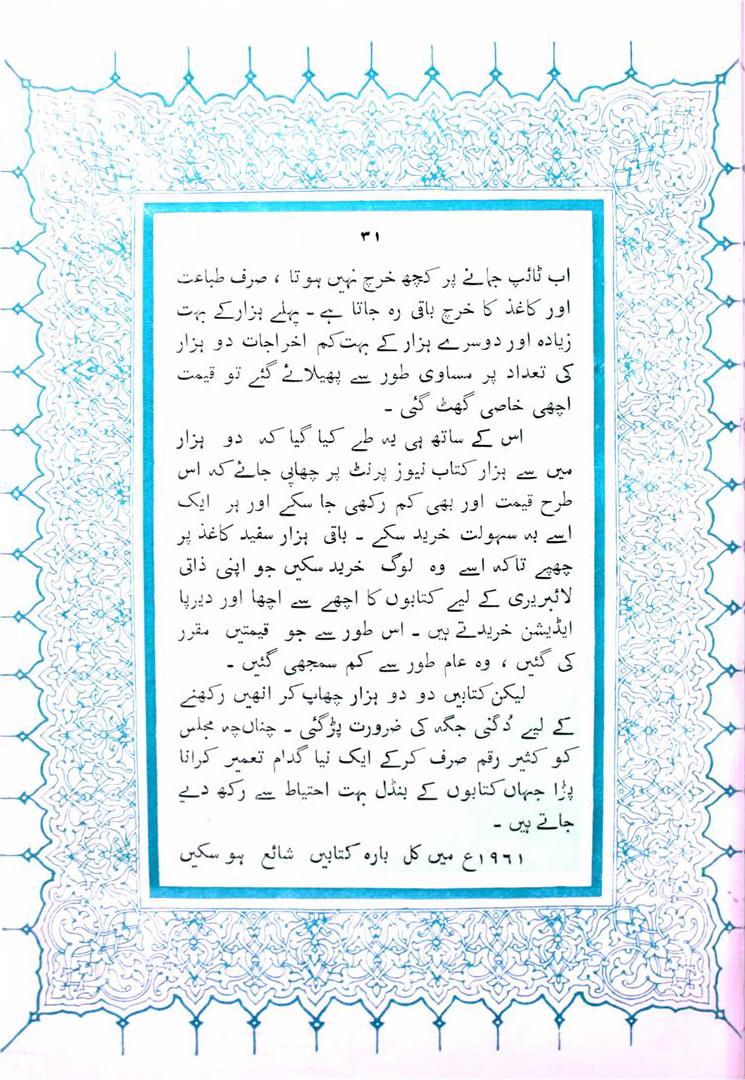 ۳۱
اب ٹائپ جمانے پر کچھ خرچ نہیں ہوتا ، صرف طباعت
اور کاغذ کا خرچ باقی رہ جاتا ہے ۔ پہلے ہزار کے بہت
زیادہ اور دوسرے ہزار کے بہت کم اخراجات دو ہزار
کی تعداد پر مساوی طور سے پھیلائے گئے تو قیمت
اچھی خاصی گھٹ گئی ۔
اس کے ساتھ ہی یہ طے کیا گیا کہ دو ہزار
میں سے ہزار کتاب نیوز پرنٹ پر چھاپی جائے کہ اس
طرح قیمت اور بھی کم رکھی جا سکے اور ہر ایک
اسے بہ سہولت خرید سکے ۔ باقی ہزار سفید کاغذ پر
چھپے تاکہ اسے وہ لوگ خرید سکیں جو اپنی ذاتی
لائبریری کے لیے کتابوں کا اچھے سے اچھا اور دیرپا
ایڈیشن خریدتے ہیں ۔ اس طور سے جو قیمتیں مقرر
کی گئیں ، وہ عام طور سے کم سمجھی گئیں ۔
لیکن کتابیں دو دو ہزار چھاپ کر انھیں رکھنے
کے لیے دُگنی جگہ کی ضرورت پڑگئی ۔ چناں چہ مجلس
کو کثیر رقم صرف کرکے ایک نیا گدام تعمیر کرانا
پڑا جہاں کتابوں کے بنڈل بہت احتیاط سے رکھ دیے
جاتے ہیں ۔
۱۹٦۱ع میں کل بارہ کتابیں شائع ہو سکیں